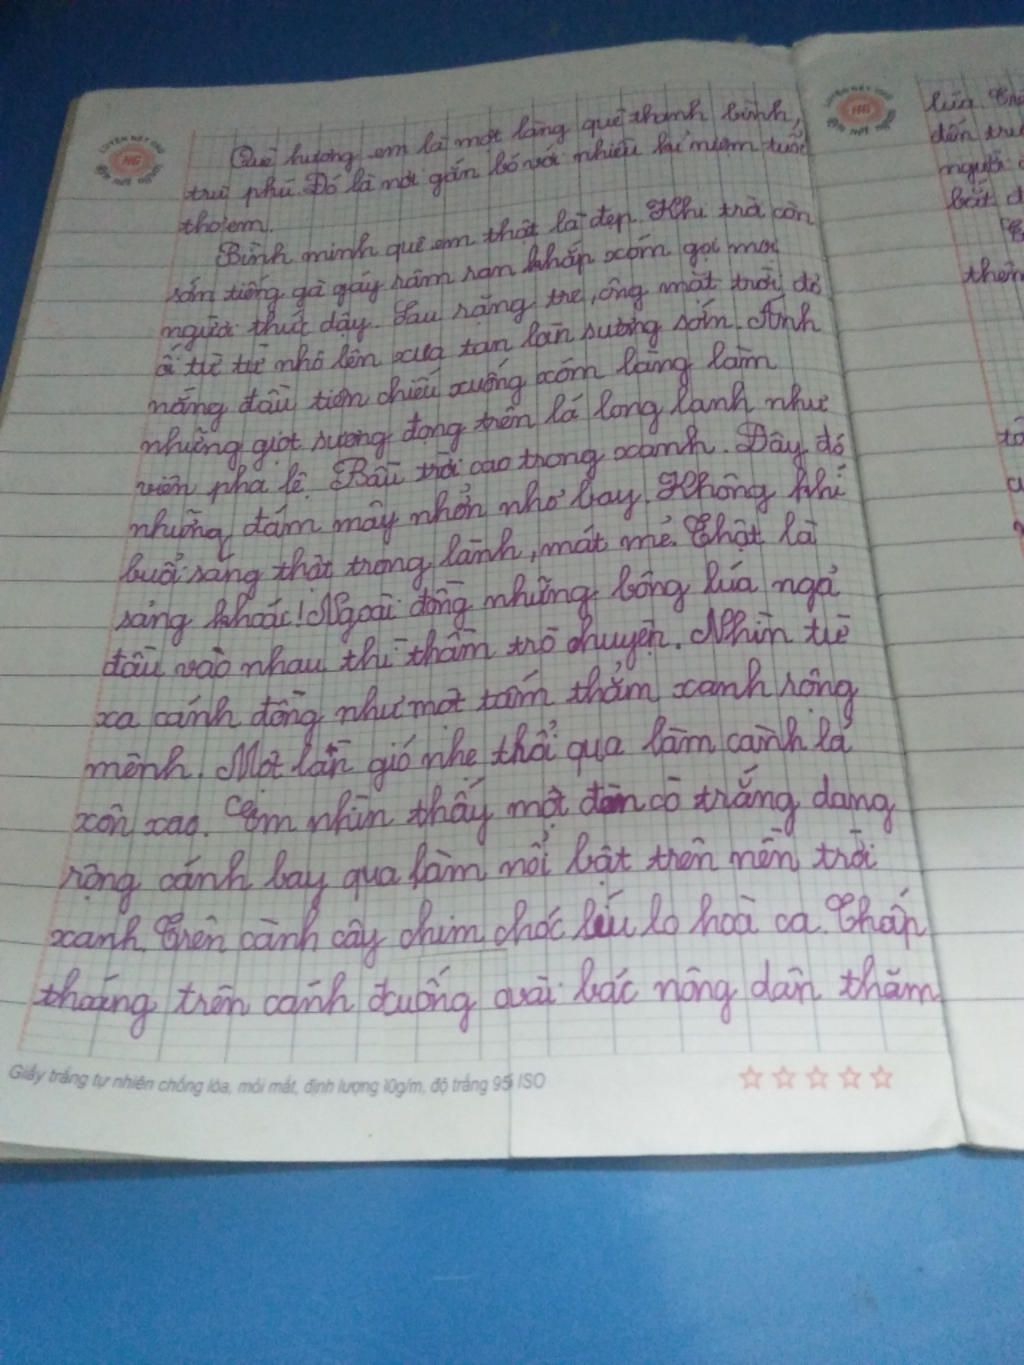 Quê hương em là một làng quê thanh bình,
trù phú. Đó là nơi gắn bó với nhiều kỉ niệm tuổi
thơ em.
Bình minh quê em thật là đẹp. Khi trời còn
sớm tiếng gà gáy râm ran khắp xóm gọi mọi
người thức dậy. Sau rặng tre, ông mặt trời đỏ
ối từ từ nhô lên xua tan làn sương sớm. Ánh
nắng đầu tiên chiếu xuống xóm làng làm
những giọt sương đọng trên lá long lanh như
viên pha lê. Bầu trời cao trong xanh. Đây đó
những đám mây nhởn nhơ bay. Không khí
buổi sáng thật trong lành, mát mẻ. Thật là
sảng khoái! Ngoài đồng những bông lúa ngả
đầu vào nhau thì thầm trò chuyện. Nhìn từ
xa cánh đồng như một tấm thảm xanh rộng
mênh. Một làn gió nhẹ thổi qua làm cành lá
xôn xao. Em nhìn thấy một đàn cò trắng dang
rộng cánh bay qua làm nổi bật trên nền trời
xanh. Trên cành cây chim chóc líu lo hoà ca. Thấp
thoáng trên cánh đường vài bác nông dân thăm
Giấy trắng tự nhiên chống lóa, mỏi mắt, định lượng 10g/m, độ trắng 95 ISO
lúa.
đến
người
bắt
thêm